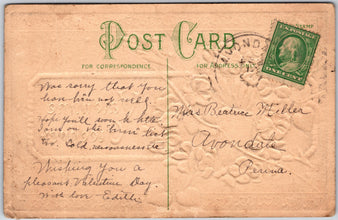 POST CARD
FOR CORRESPONDENCE
FOR ADDRESS
AVONDA
Was sorry that you
have been
Hope you'll soon be better
on the last
Wishing You a
pleasant Valentine Day.
With love Edith
Miss Beatrice Miller
Avondale
Penna.